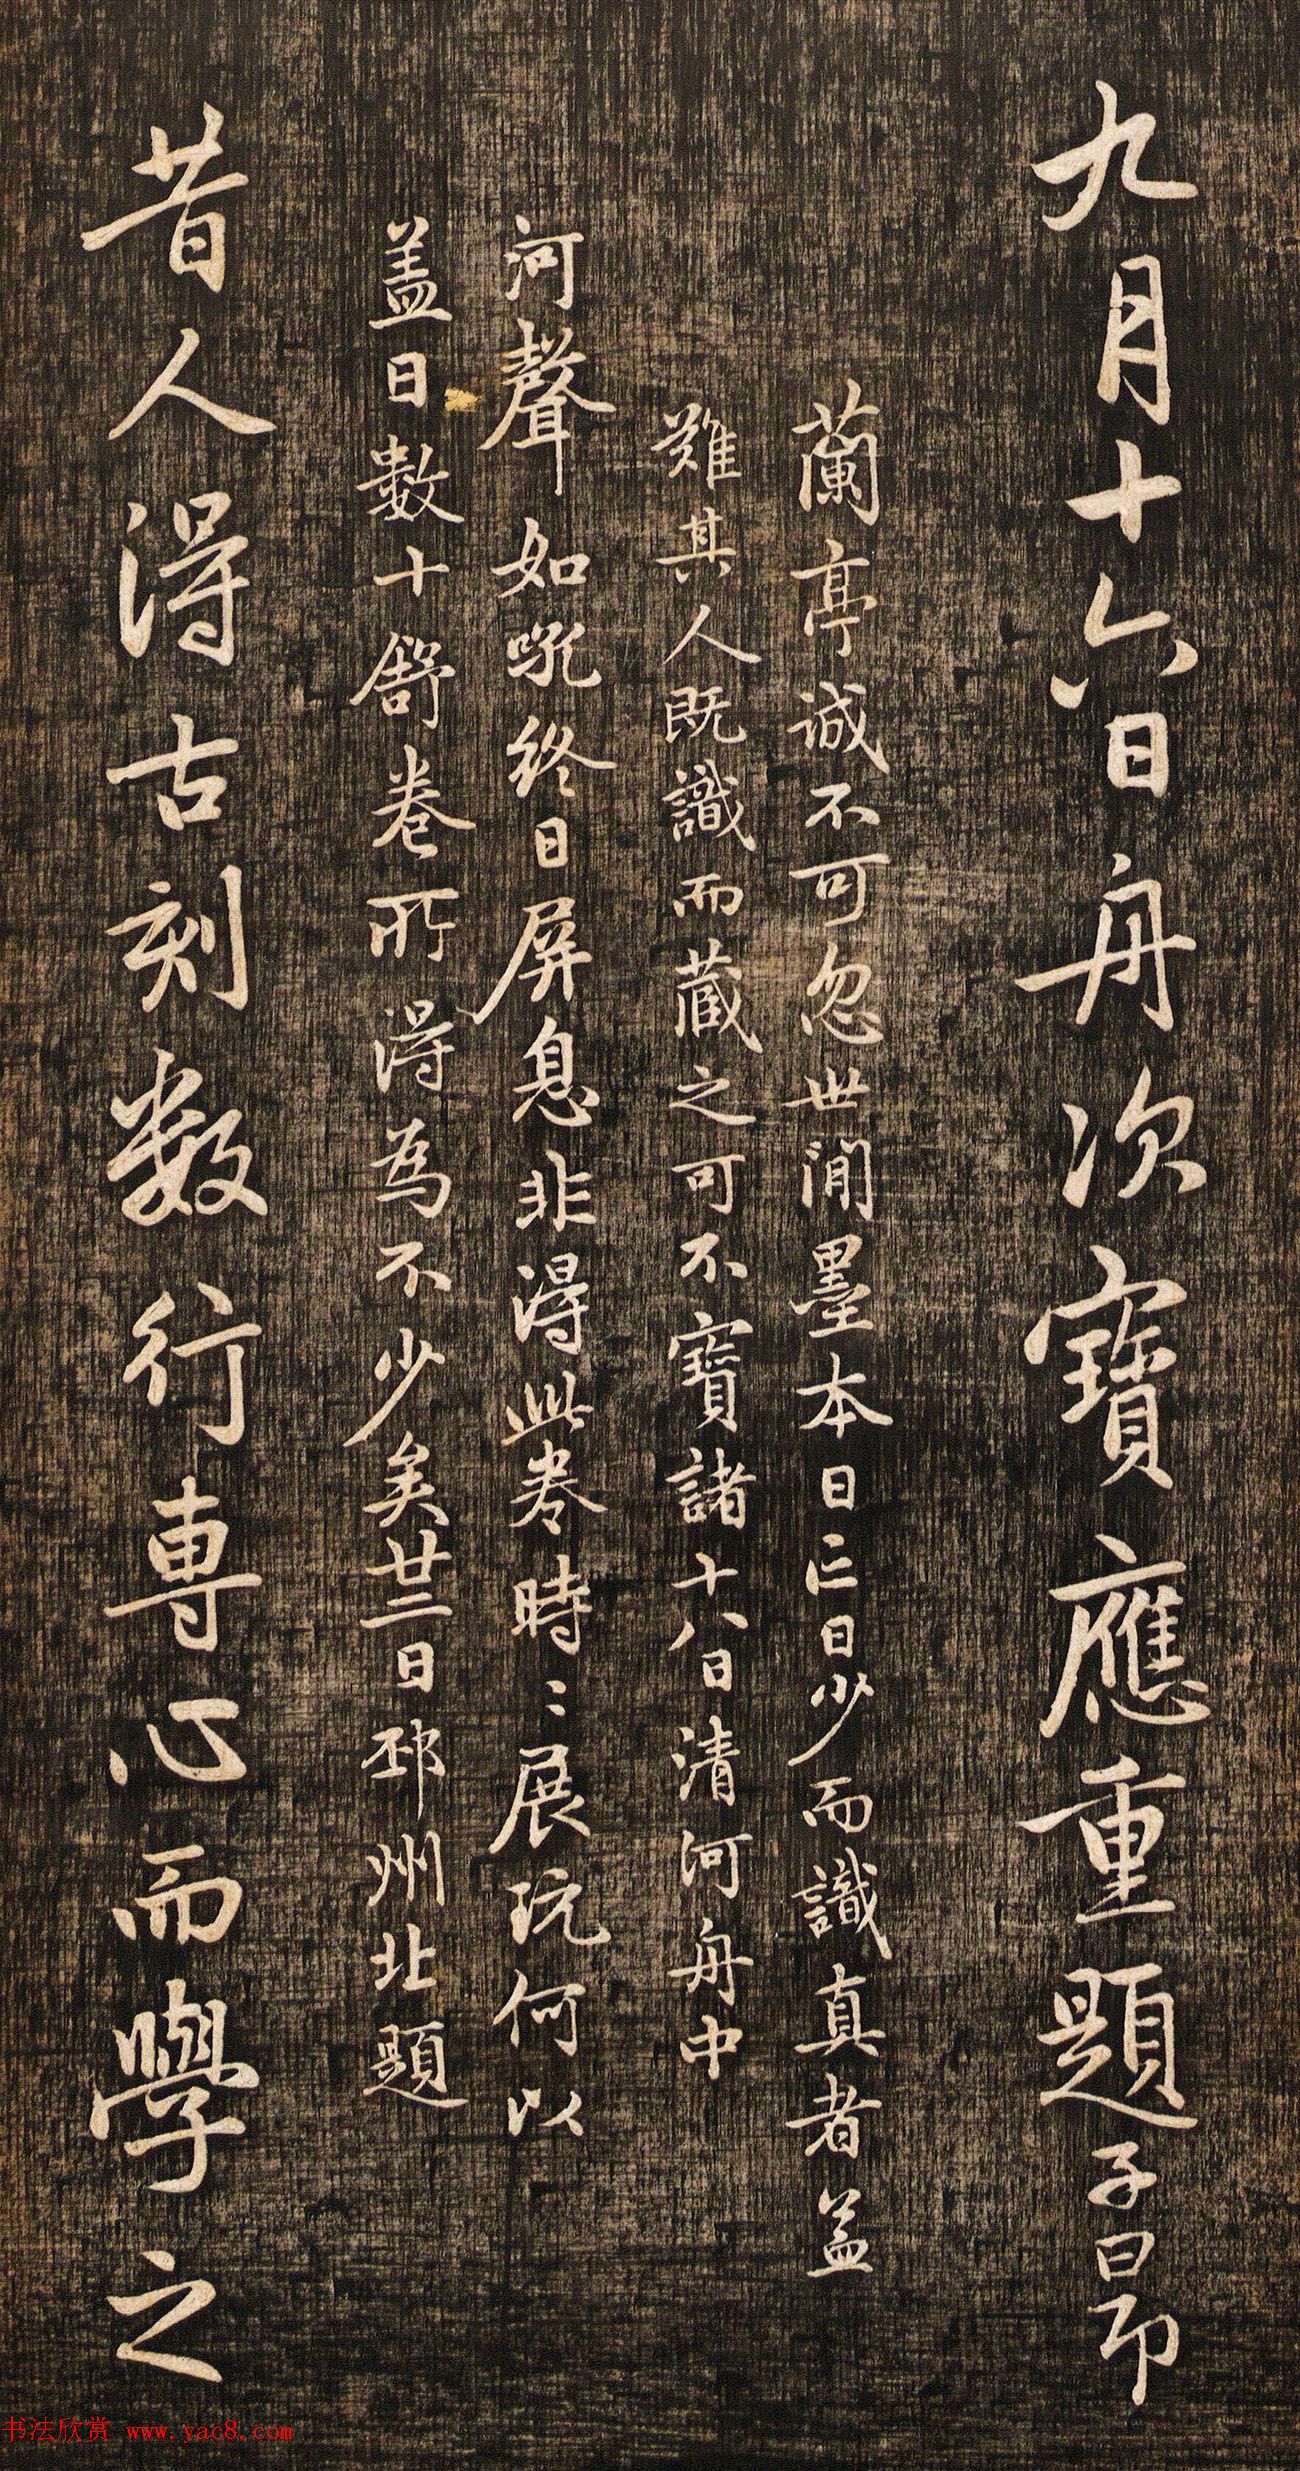 九月十六日舟次寶應重題子昂
蘭亭誠不可忽世間墨本日亡日少而識真者蓋
難其人既識而藏之可不寶諸十八日清河舟中
河聲如吼終日屏息非得此卷時〻展玩何以
蓋日數十舒卷所得為不少矣廿二日邳州北題
昔人得古刻數行專心而學之
书法欣赏 www.yac8.com